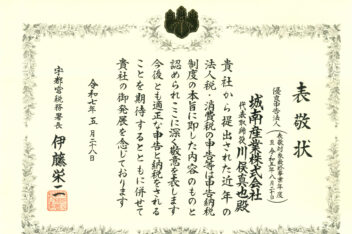 表敬状
優良申告法人
城南産業株式会社
代表取締役 川俣真也殿
貴社から提出された近年の
法人税・消費税の申告等は申告納税
制度の本旨に即した内容のものと
認められここに深く敬意を表します
今後とも適正な申告と納税をされる
ことを期待するとともに併せて
貴社の御発展を念じております
令和七年 五月二十八日
宇都宮税務署長 伊藤栄二